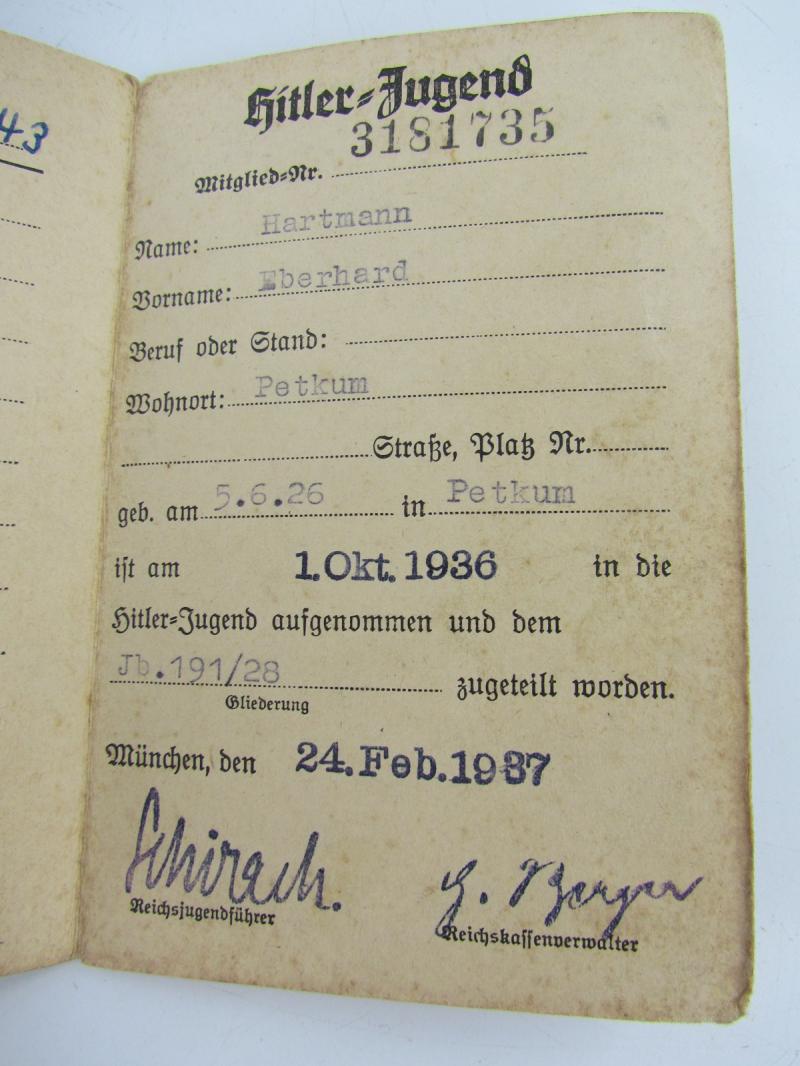 43
Hitler-Jugend
3181735
Mitglied-Nr.
Name: Hartmann
Vorname: Eberhard
Beruf oder Stand:
Wohnort: Petkum
Straße, Platz Nr.
geb. am 5.6.26 in Petkum
ist am 1. Okt. 1936 in die
Hitler-Jugend aufgenommen und dem
Jb. 191/28 zugeteilt worden.
Gliederung
München, den 24. Feb. 1937
Schirach. G. Berger
Reichsjugendführer Reichskassenverwalter